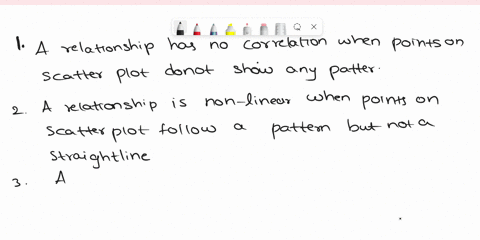 1. A relationship has no correlation when points on
scatter plot donot show any patter.
2. A relationship is non-linear when points on
scatter plot follow a pattern but not a
straightline
3. A